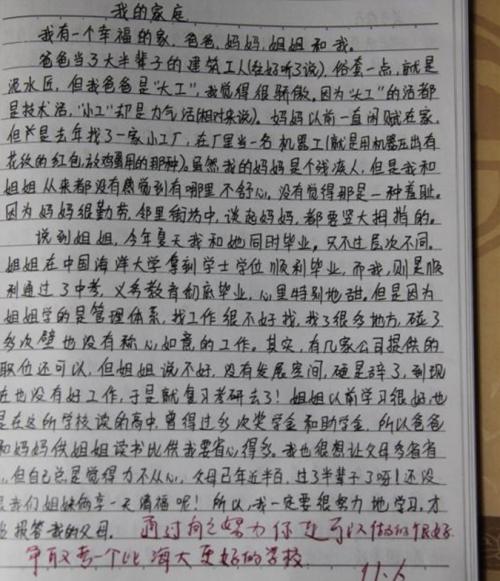 我的家庭
我有一个幸福的家，爸爸，妈妈，姐姐和我。
爸爸当了大半辈子的建筑工人(在好听了说)，俗套一点，就是
泥水匠，但我爸爸是"大工"，我觉得很骄傲。因为"大工"的活都
是技术活，"小工"却是力气活(相对来说)。妈妈以前一直闲赋在家，
但是去年找了一家小工厂，在厂里当一名机器工(就是用机器压出有
花纹的红包，放鸡蛋用的那种)。虽然我的妈妈是个残疾人，但是我和
姐姐从来都没有感觉到有哪里不舒心，没有觉得那是一种羞耻。
因为妈妈很勤劳，邻里街坊中，谈起妈妈，都要竖大拇指的。
说到姐姐，今年夏天我和她同时毕业，只不过层次不同。
姐姐在中国海洋大学拿到学士学位顺利毕业，而我，则是顺
利通过了中考，义务教育彻底毕业，心里特别地甜。但是因为
姐姐学的是管理体系，找工作很不好找，找了很多地方，碰了
多次壁也没有称心如意的工作。其实，有几家公司提供的
职位还可以，但姐姐说不好，没有发展空间，硬是辞了，到现
在也没有好工作，于是就复习考研去了！姐姐以前学习很好，也
是在这所学校读的高中，曾得过多次奖学金和助学金，所以爸爸
和妈妈供姐姐读书比供我要省心得多。我也很想让父母多省省
，但自己总是觉得力不从心，父母已年近半百，过了半辈子了呀！还没
我们姐妹俩享一天清福呢！所以，我一定要很努力地学习，才
报答我的父母。通过努力你是可以做的很好
争取考一个比海大更好的学校
11.6